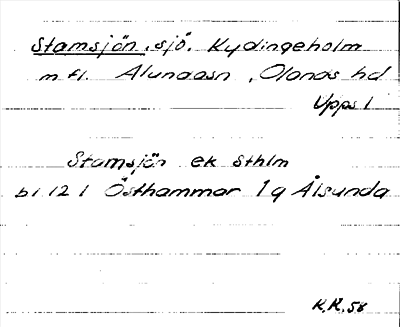 Stamsjön, sjö. Kydingeholm
m fl. Alundasn, Olands hd
Upps l
Stamsjön ek Sthlm
bl 12 l Östhammar 1 q Ålsunda
K.R. 58